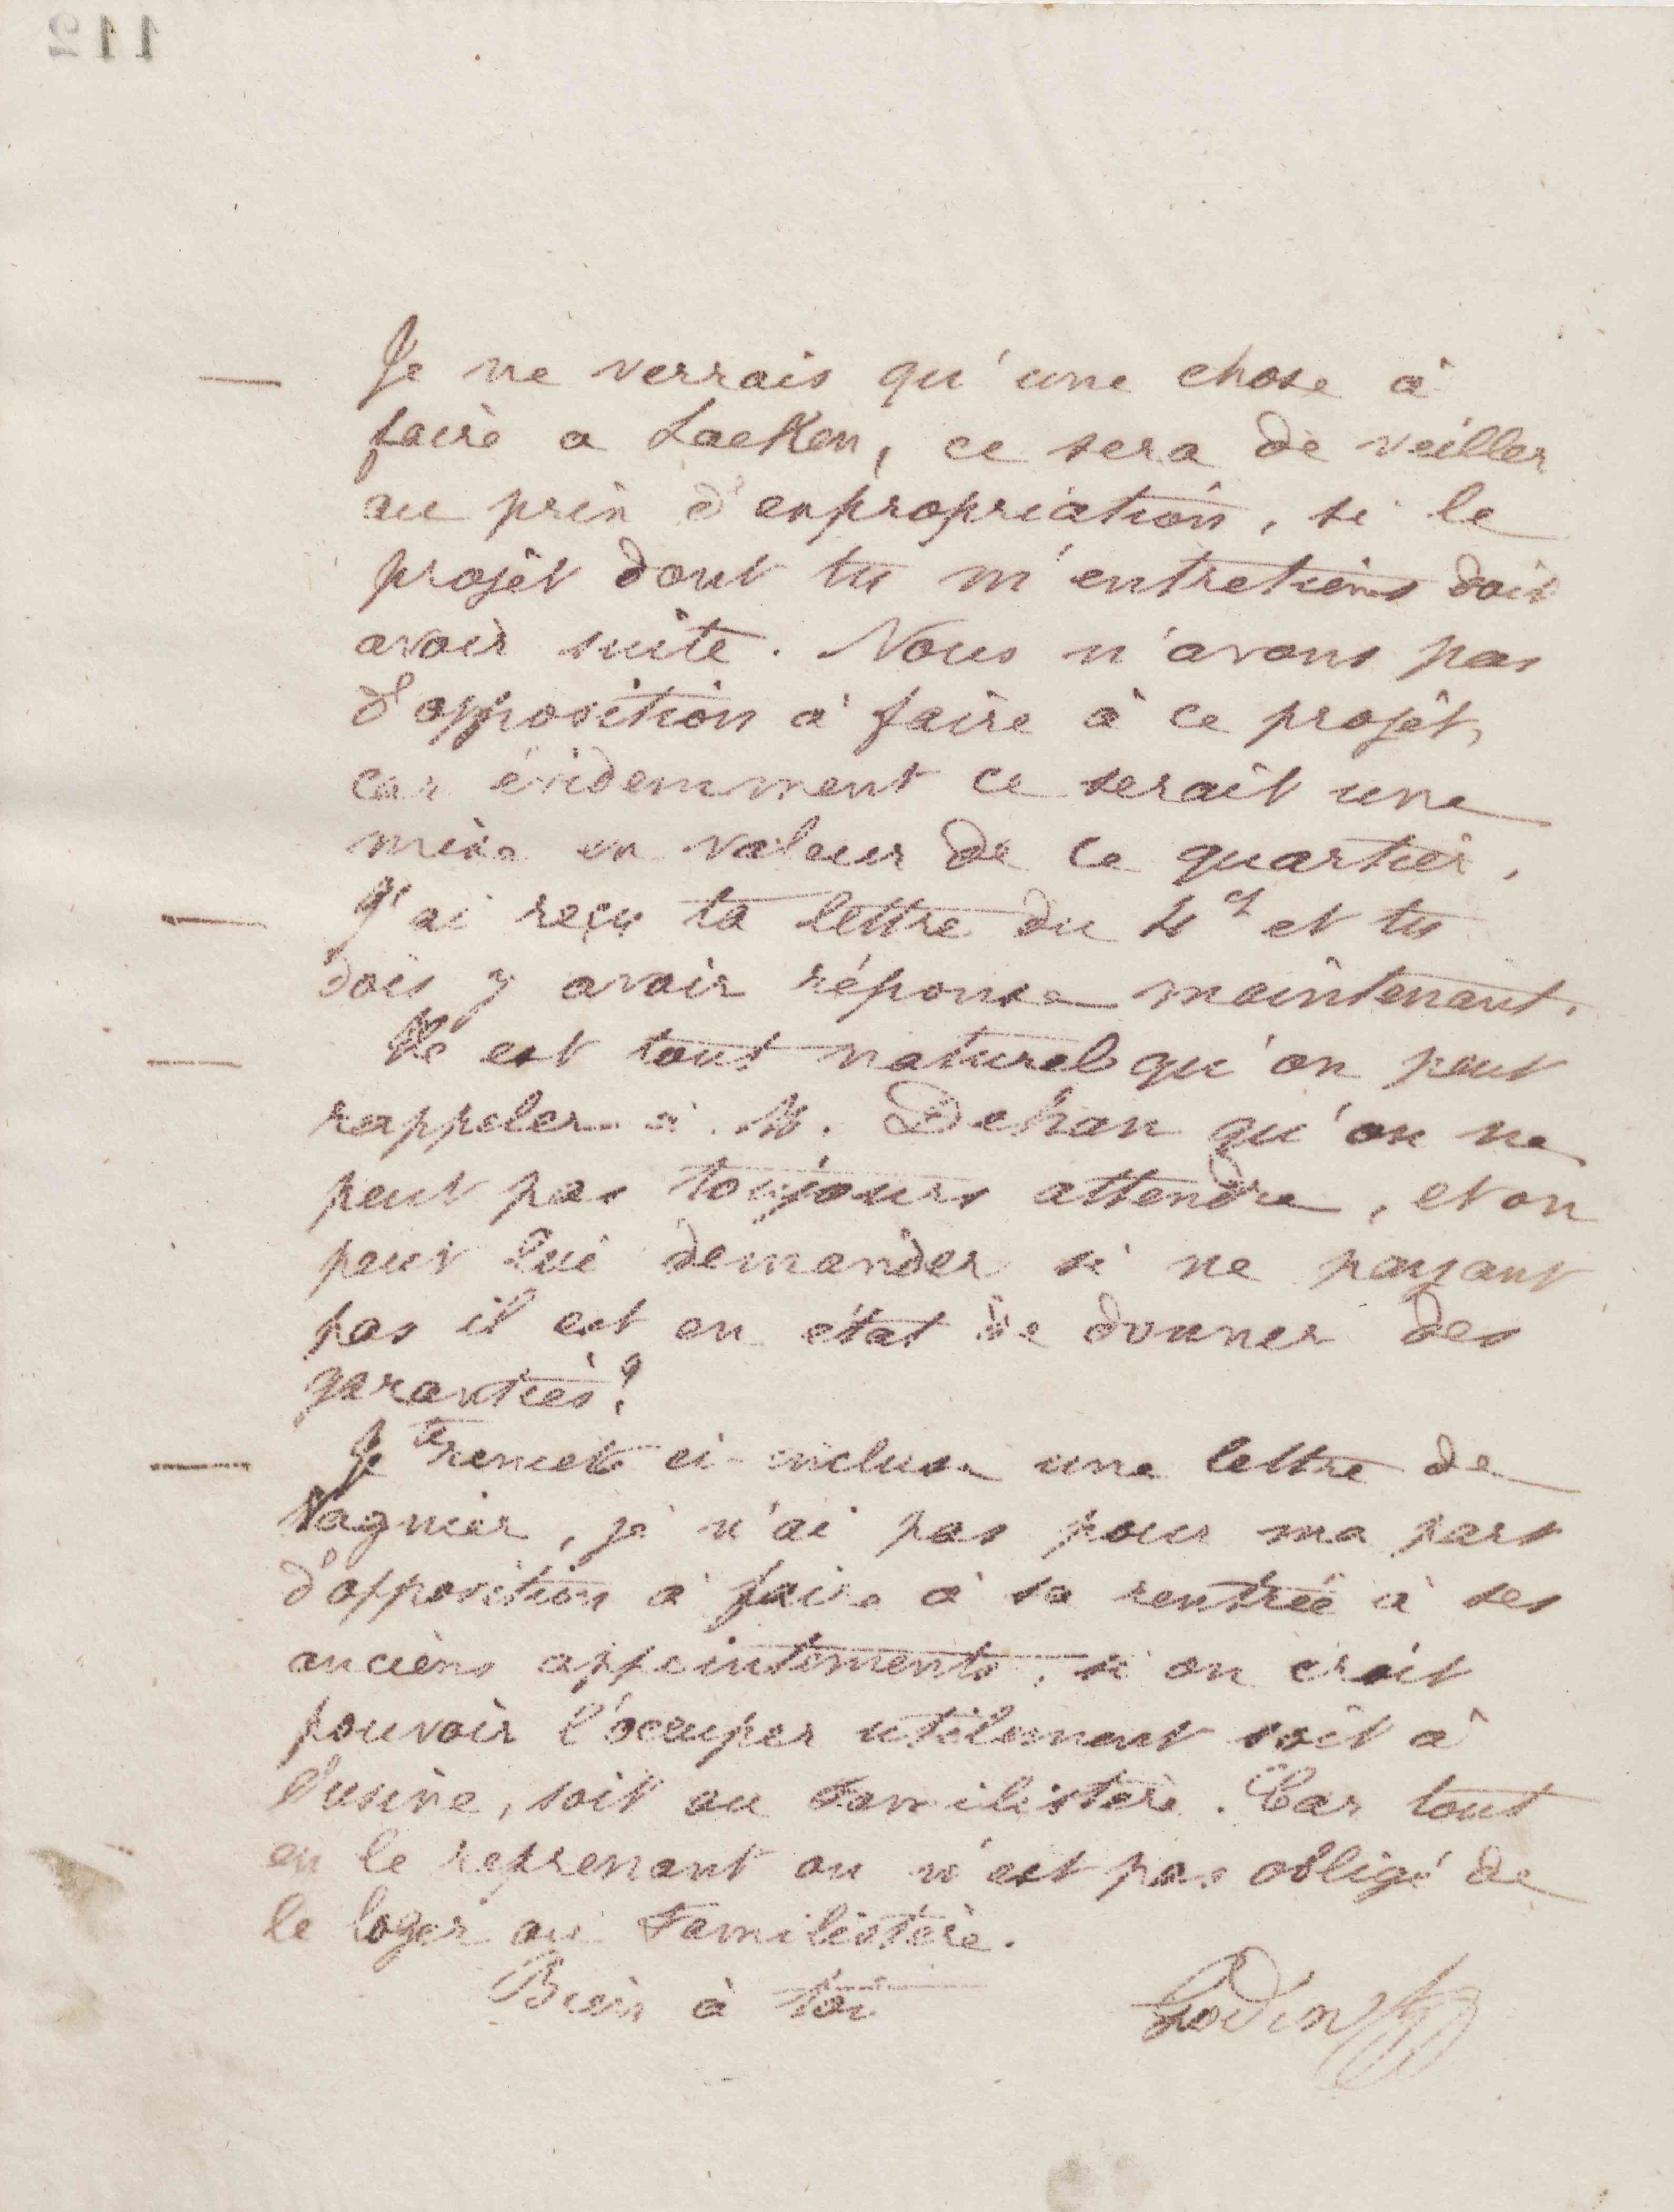 112
— Je ne verrais qu'une chose à
faire a Laeken, ce sera de veiller
au prix d'expropriation, si le
projêt dont tu m'entretiens doit
avoir suite. Nous n'avons pas
d'opposition à faire à ce projêt,
car évidemment ce serait une
mise en valeur de ce quartier.
— J'ai reçu ta lettre du 4 et et tu
dois y avoir réponse maintenant.
— Il est tout naturel qu'on peut
rappeler à M. Dehan qu'on ne
peut pas toujours attendre, et on
peut lui demander si ne payant
pas il est en état de donner des
garanties?
— Je te remets ci-incluse une lettre de
Vagnier, je n'ai pas pour ma part
d'opposition à faire à sa rentrée à ses
anciens appointements, si on croit
pouvoir l'occuper utilement soit à
l'usine, soit au Familistère. Car tout
en le reprenant on n'est pas obligé de
le loger au Familistère.
Bien à toi
Godin